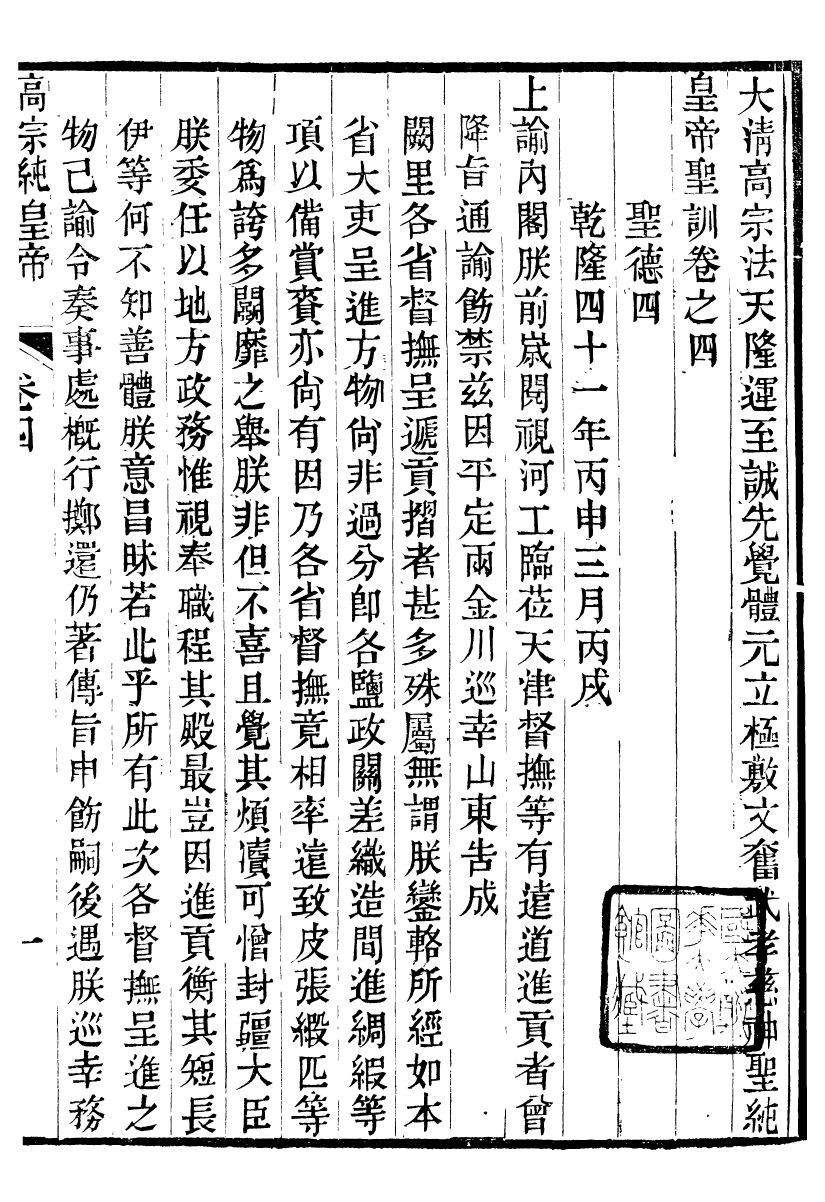 大清高宗法天隆運至誠先覺體元立極敷文奮武孝慈神聖純
皇帝聖訓卷之四
聖德四
乾隆四十一年丙申三月丙戌
上諭內閣朕前歲閱視河工臨莅天津督撫等有遠道進貢者曾
降旨通諭飭禁茲因平定兩金川巡幸山東告成
闕里各省督撫呈遞貢摺者甚多殊屬無謂朕鑾輅所經如本
省大吏呈進方物尙非過分卽各鹽政關差織造間進綢緞等
項以備賞賚亦尙有因乃各省督撫竟相率遠致皮張緞匹等
物爲誇多鬭靡之舉朕非但不喜且覺其煩瀆可憎封疆大臣
朕委任以地方政務惟視奉職程其殿最豈因進貢衡其短長
伊等何不知善體朕意昌昧若此乎所有此次各督撫呈進之
物已諭令奏事處槪行擲還仍著傳旨申飭嗣後遇朕巡幸務
高宗純皇帝 卷四 一
國立 大學 圖書 館藏